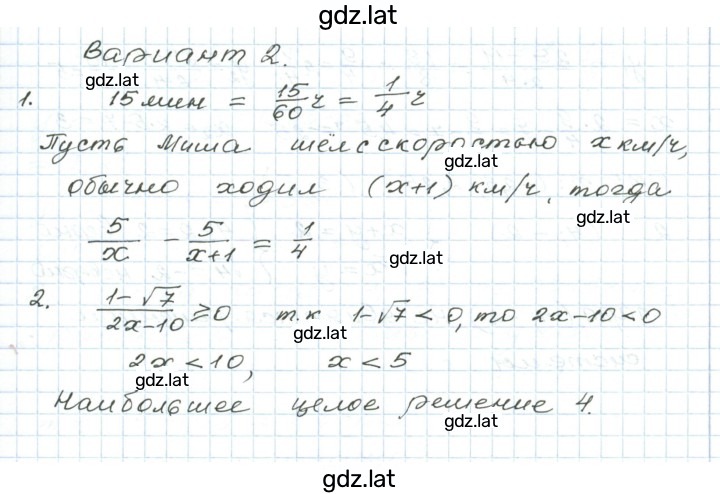 gdz.lat
Вариант 2.
gdz.lat
1. 15 мин = 15/60 ч = 1/4 ч
Пусть Миша шёл с скоростью x км/ч,
gdz.lat
обычно ходил (x+1) км/ч, тогда
gdz.lat
5/x - 5/(x+1) = 1/4
gdz.lat
2. (1-√7)/(2x-10) ≥ 0 т.к 1-√7 < 0, то 2x-10 < 0
gdz.lat
2x < 10, x < 5
gdz.lat
Наибольшее целое решение 4.
gdz.lat
gdz.lat